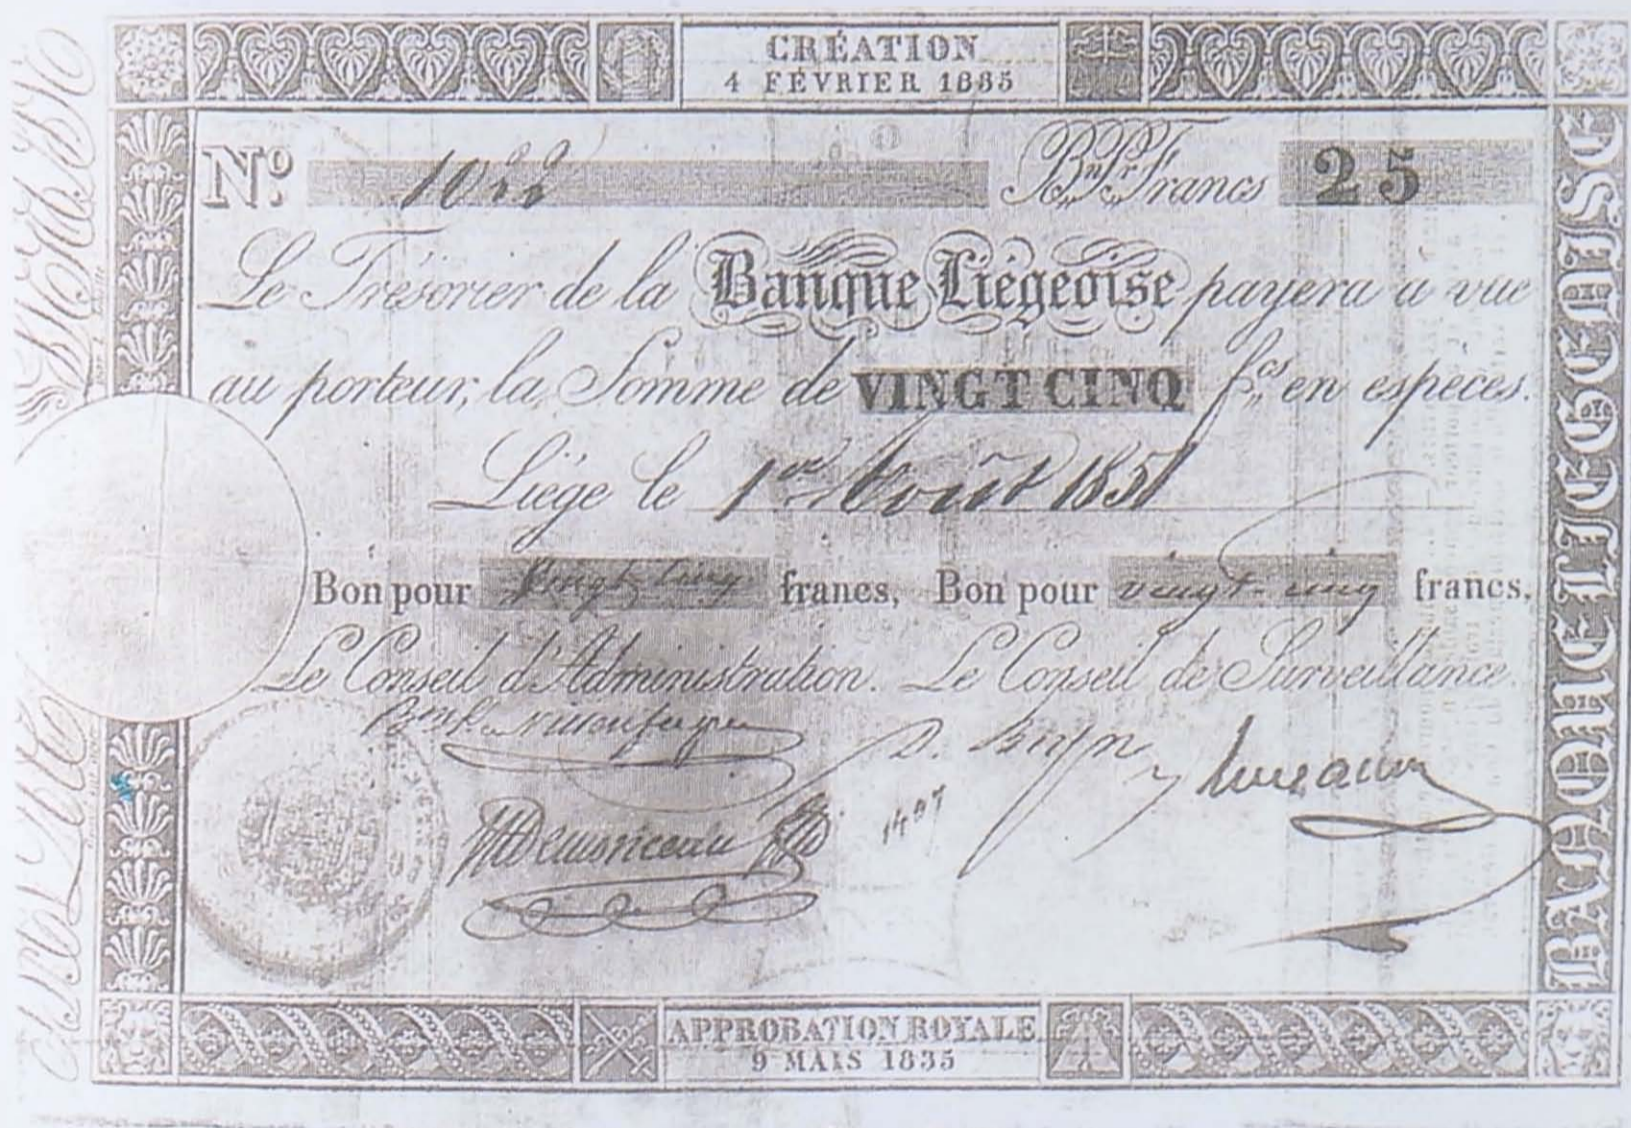 CRÉATION
4 FÉVRIER 1835
Nº 1022 Bon Pr Francs 25
Le Trésorier de la Banque Liégeoise payera a vue
au porteur, la Somme de VINGT CINQ fcs en espèces.
Liége le 1er Août 1851
Bon pour Vingt Cinq francs, Bon pour vingt-cinq francs,
Le Conseil d'Administration. Le Conseil de Surveillance.
1497
APPROBATION ROYALE
9 MARS 1835
BANQUE LIEGEOISE